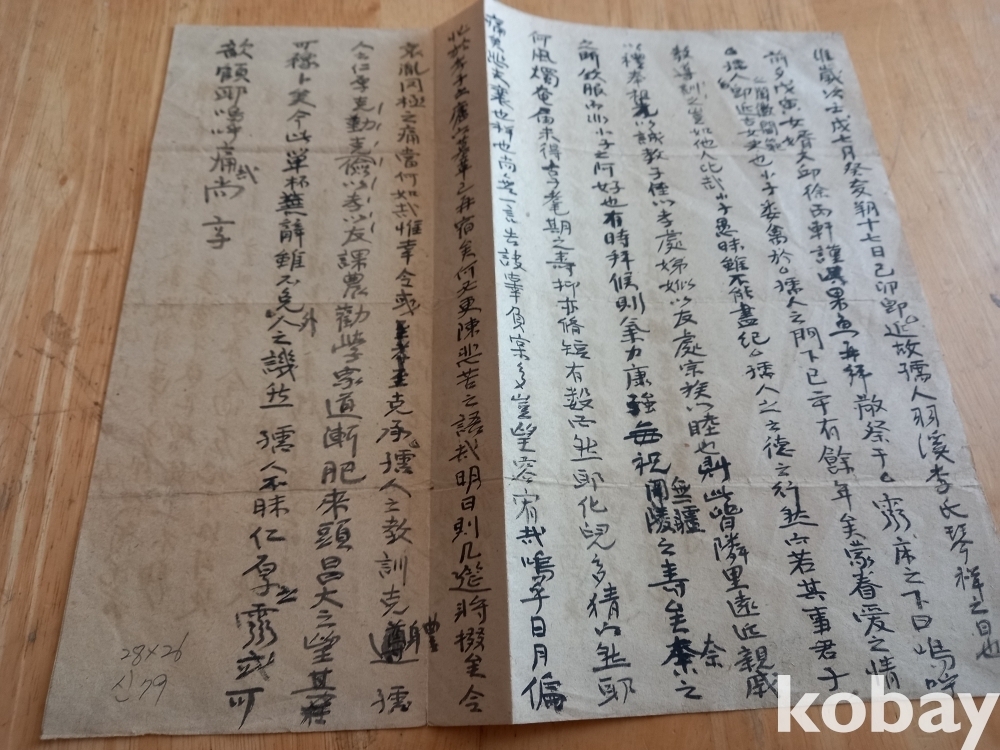 維歲次壬戌七月癸亥朔十七日己卯卽近故孺人羽溪李氏琴祥之日也
前夕戊寅女壻大邱徐丙軒謹具果魚再拜敬祭于靈床之下曰嗚呼
孺人卽近古女史也小子委禽於孺人之門下已二十有餘年矣蒙眷愛之情
閨徽閫範
教導訓之豈如他人比哉小子愚昧雖不能盡記孺人之之德之行然若其事君子
以禮奉祖先以誠教子侄以孝處娣姒以友處宗族以睦也則此皆隣里遠近親戚
之所欽服而小子之阿好也有時拜候則氣力康強每祝岡陵之壽矣奈之
無疆
奈
何風燭奄屆未得享耄期之壽抑亦脩短有數而然耶化兒多猜而然耶
痛矣悲夫襄也祥也尚無一言告訣辜負實多豈望容宥哉嗚呼日月偏
忙於孝子之廬而草已再宿矣何又更陳悲苦之語哉明日則几筵將掇矣令
哀胤罔極之痛當何如哉惟幸令彧克承孺人之教訓克遵孺
人仁孝克勤克儉以孝以友課農勸學家道漸肥來頭昌大之望其
可樣卜矣今此單杯蕪辭雖不免人之譏然孺人不昧仁厚之靈或可
外
歆顧耶嗚呼痛哉尚享
28×26
신79
kobay